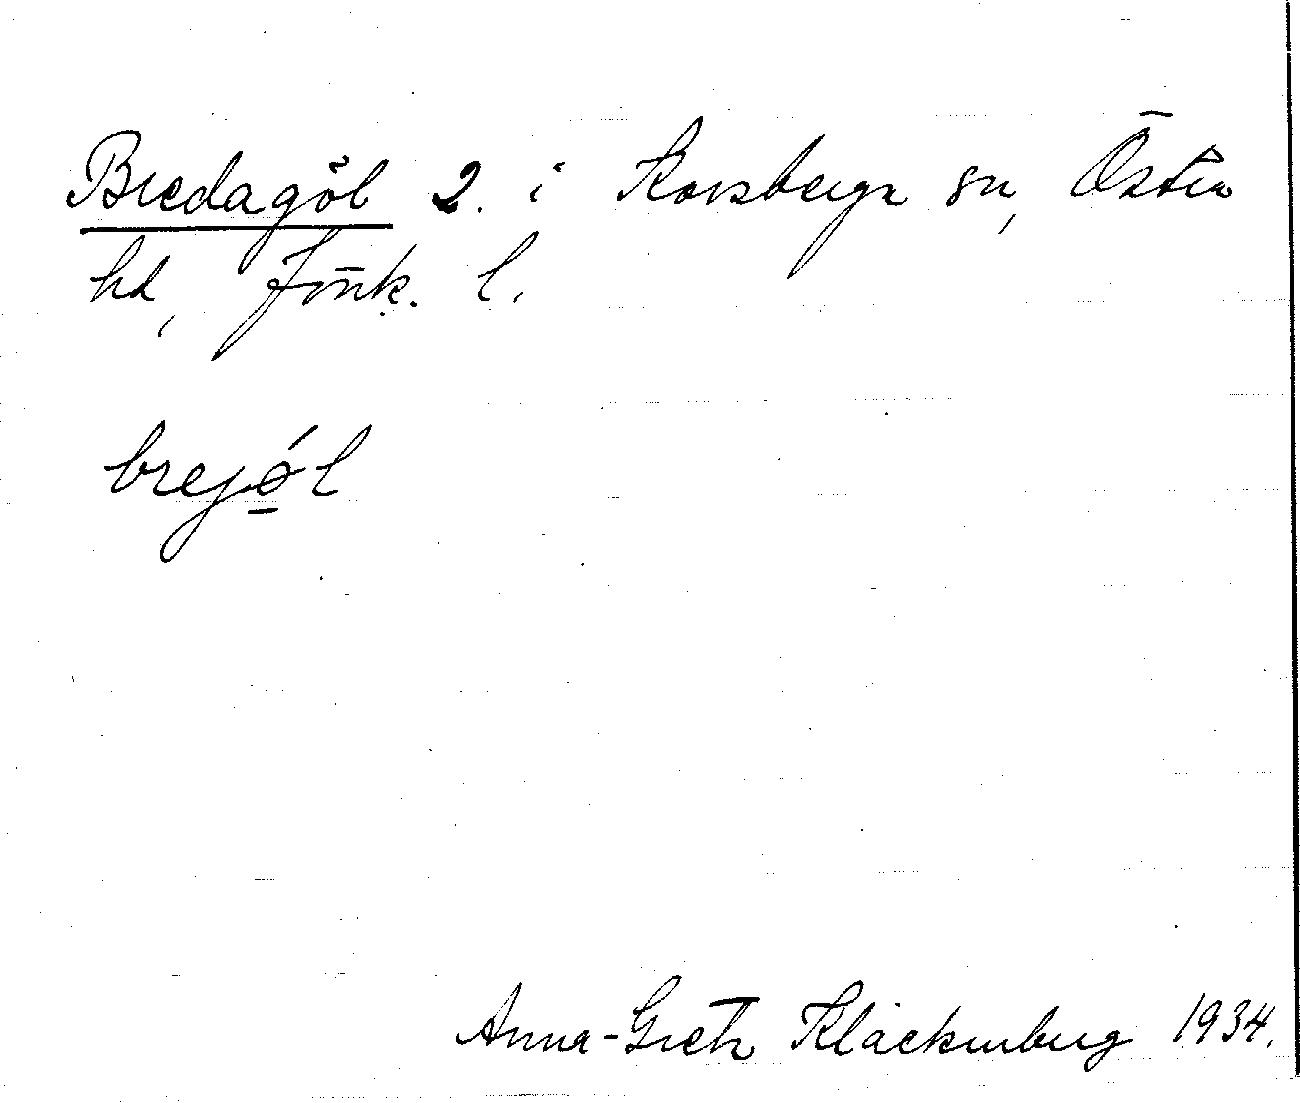 Bredagöl 2. i Korsberga sn, Östra
hd, Jönk. l.
brejǿl
Anna-Greta Kläckenberg 1934.